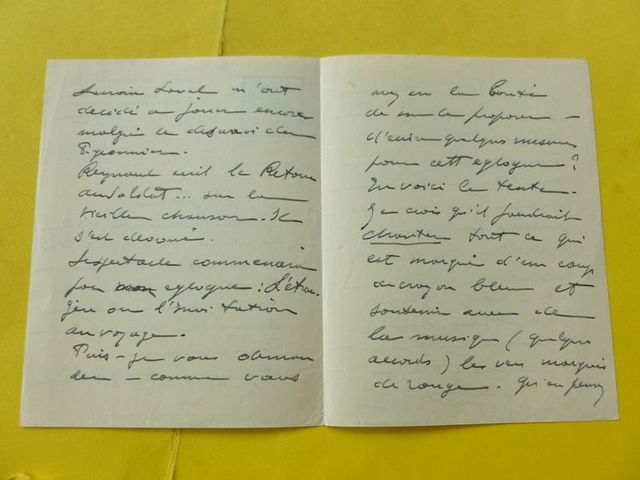 m'ont
décidé a jouer encore
malgré le désarroi des
Reymond écrit le Retour
du Soldat... sur la
vieille chanson. Il
s'est dévoué.
Le spectacle commencera
par mon eglogue : L'étran-
gère ou l'Invitation
au voyage.
Puis-je vous deman
der – comme vous
avez eu la bonté
de me le proposer –
d'écrire quelques mesures
pour cette eglogue ?
En voici le texte.
Je crois qu'il faudrait
chanter tout ce qui
est marqué d'un coup
de crayon bleu et
soutenir avec de
la musique (quelques
accords) les vers marqués
de rouge. Qu'en pensez